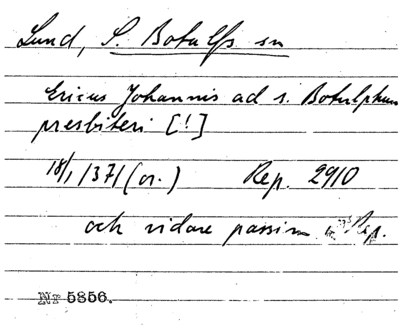 Lund, S. Botulfs sn
Ericus Johannis ad s. Botulphum
presbiteri [!]
18/1 1371 (or.) Rep. 2910
och vidare passim i Rep.
Nr 5856.